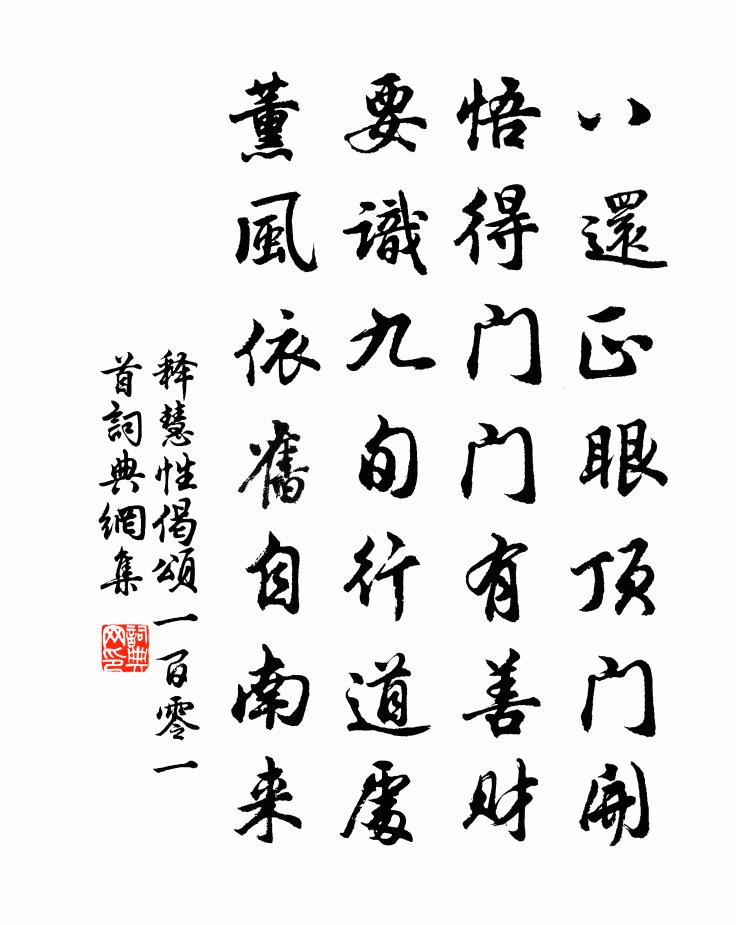 八還正眼頂门開
悟得门门有善财
要識九旬行道處
薰風依舊自南来
释慧性偈頌一百零一
首詞典網集
詞典网印